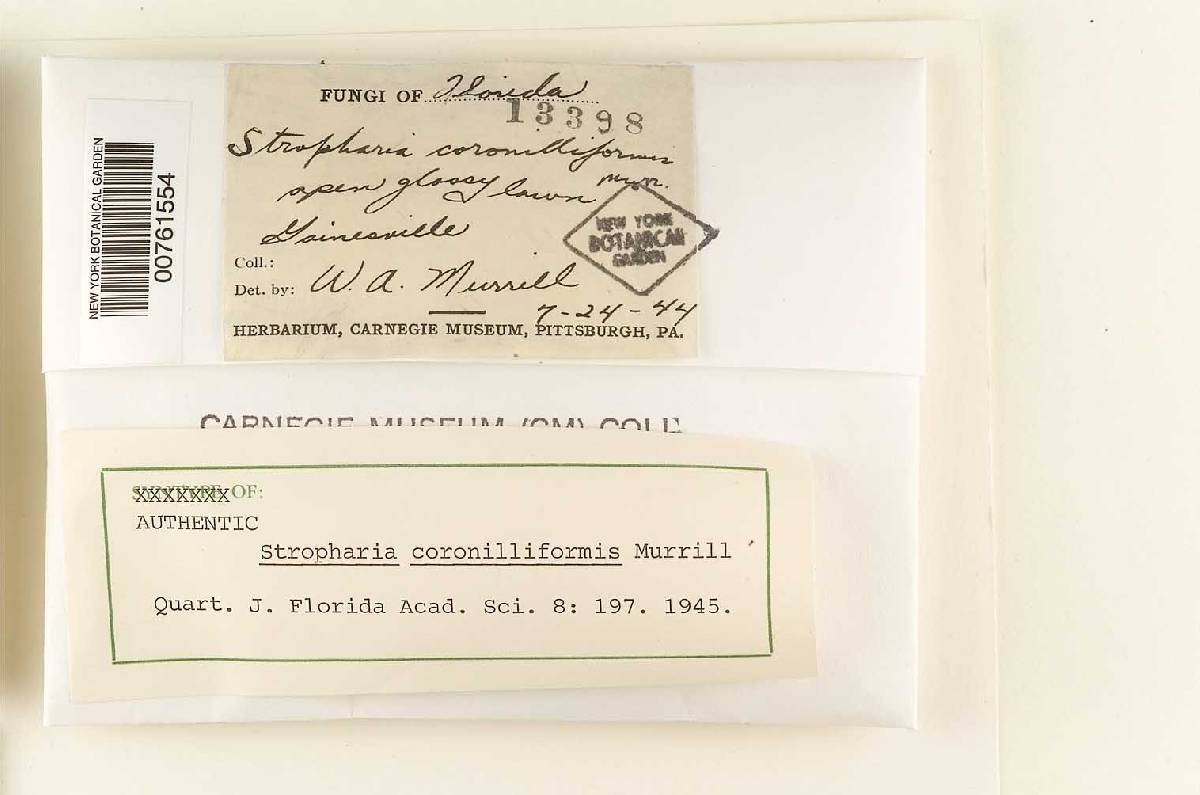 NEW YORK BOTANICAL GARDEN
00761554
FUNGI OF Florida
13398
Stropharia coronilliformis
Murr.
open glassy lawn
Gainesville
NEW YORK
BOTANICAL
GARDEN
Coll.:
Det. by: W. A. Murrill
7-24-44
HERBARIUM, CARNEGIE MUSEUM, PITTSBURGH, PA.
CARNEGIE MUSEUM (CM)
XXXXXXX OF:
AUTHENTIC
Stropharia coronilliformis Murrill
Quart. J. Florida Acad. Sci. 8: 197. 1945.